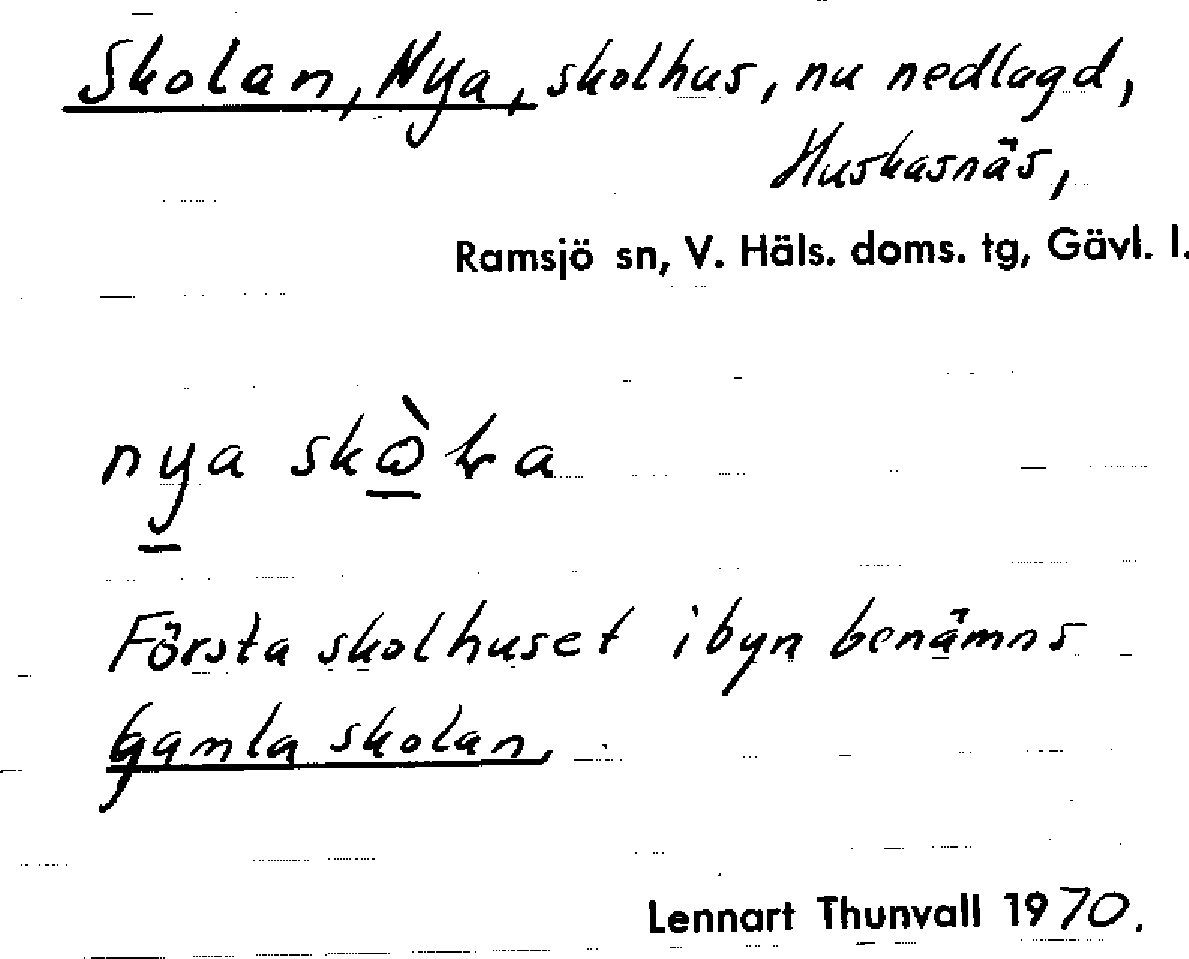 Skolan, Nya, skolhus, nu nedlagd,
Huskasnäs,
Ramsjö sn, V. Häls. doms. tg, Gävl. l.
nya
Första skolhuset i byn benämns
Gamla skolan.
Lennart Thunvall 1970.